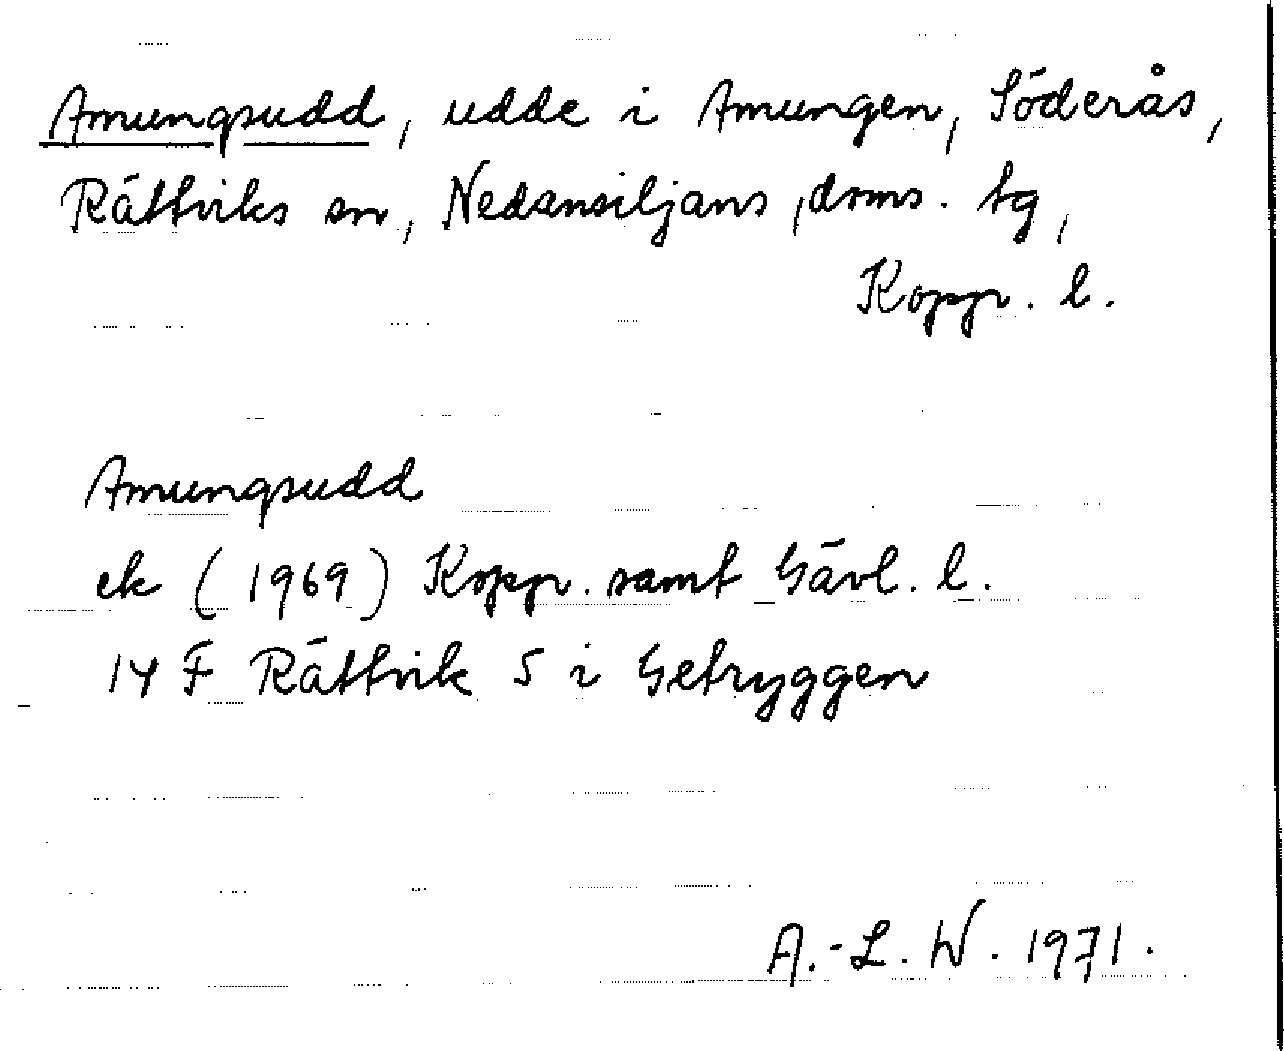 Amungsudd, udde i Amungen, Söderås,
Rättviks sn, Nedansiljans ,doms. tg,
Kopp. l.
Amungsudd
ek (1969) Kopp. samt Gävl. l.
14 F Rättvik 5 i Getryggen
A.-L. W. 1971.